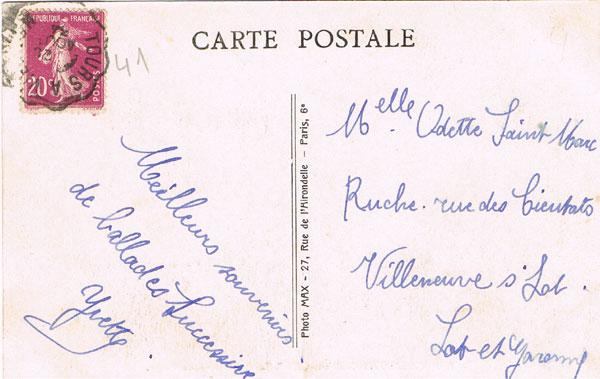 RÉPUBLIQUE FRANÇAISE
20c
POSTES
TOURS A
41
CARTE POSTALE
Meilleurs souvenirs
de ballades successive
Yvette.
Photo MAX - 27, Rue de l'Hirondelle - Paris, 6e
Melle. Odette Saint Marc
Ruche. rue des
Villeneuve s/ Lot.
Lot et Garonne